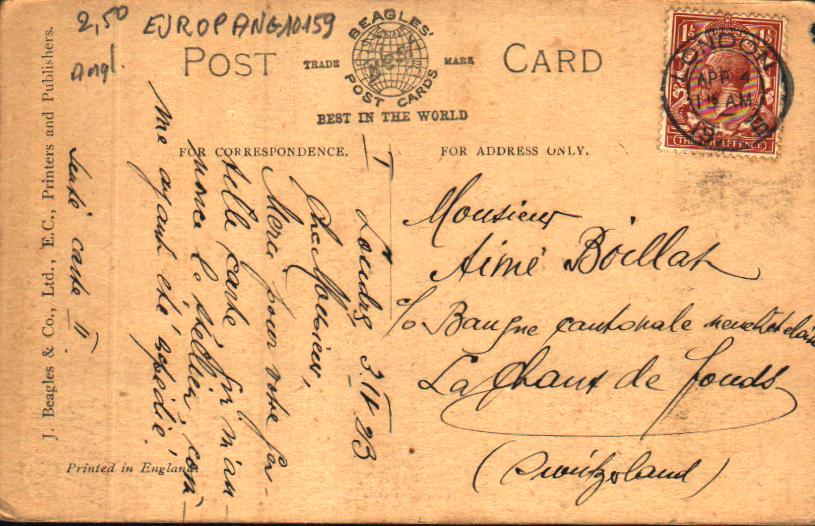 2,50
EUROPANG10159
Angl.
POST CARD
TRADE MARK
BEAGLES'
POST CARDS
BEST IN THE WORLD
FOR CORRESPONDENCE.
FOR ADDRESS ONLY.
1½ 1½
THREE HALFPENCE
LONDON
APR 4
AM
19
Londres 3.IV.23
Monsieur,
Merci pour votre
belle carte
me ayant été
carte
Monsieur
Aimé Boillat
c/o Banque cantonale neuchâteloise
La Chaux de fonds
(Switzerland)
J. Beagles & Co., Ltd., E.C., Printers and Publishers.
Printed in England.